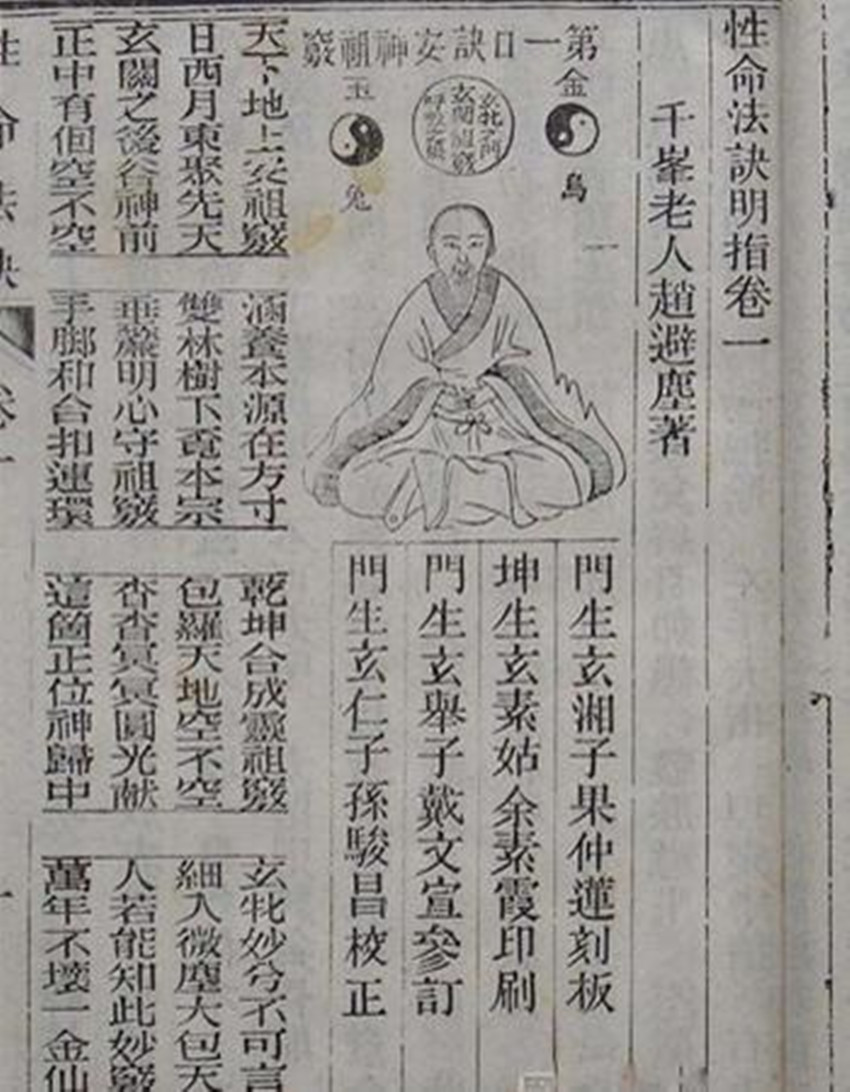 性命法訣明指卷一
千峯老人趙避塵著
第一口訣安神祖竅
金
烏
玄牝之門
玄關祖竅
呼吸之根
玉
兔
門生玄湘子果仲蓮刻板
坤生玄素姑余素霞印刷
門生玄舉子戴文宣參訂
門生玄仁子孫駿昌校正
天下地上安祖竅
日西月東聚先天
玄關之後谷神前
正中有個空不空
涵養本源在方寸
雙林樹下覓本宗
垂簾明心守祖竅
手脚和合扣連環
乾坤合成靈祖竅
包羅天地空不空
杳杳冥冥圓光献
這箇正位神歸中
玄牝妙兮不可言
細入微塵大包天
人若能知此妙竅
萬年不壞一金仙
性命法訣
卷一
一